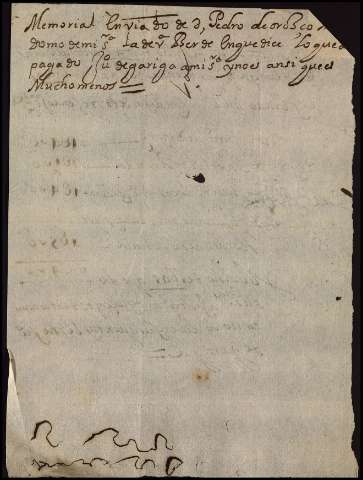 Memorial Enviado de d, Pedro de orosco
domo de mi s.ª la de v Per de En que dice Lo que
pagado Ju.º de gariga a mi s.ª y no es ansi que es
Mucho menos